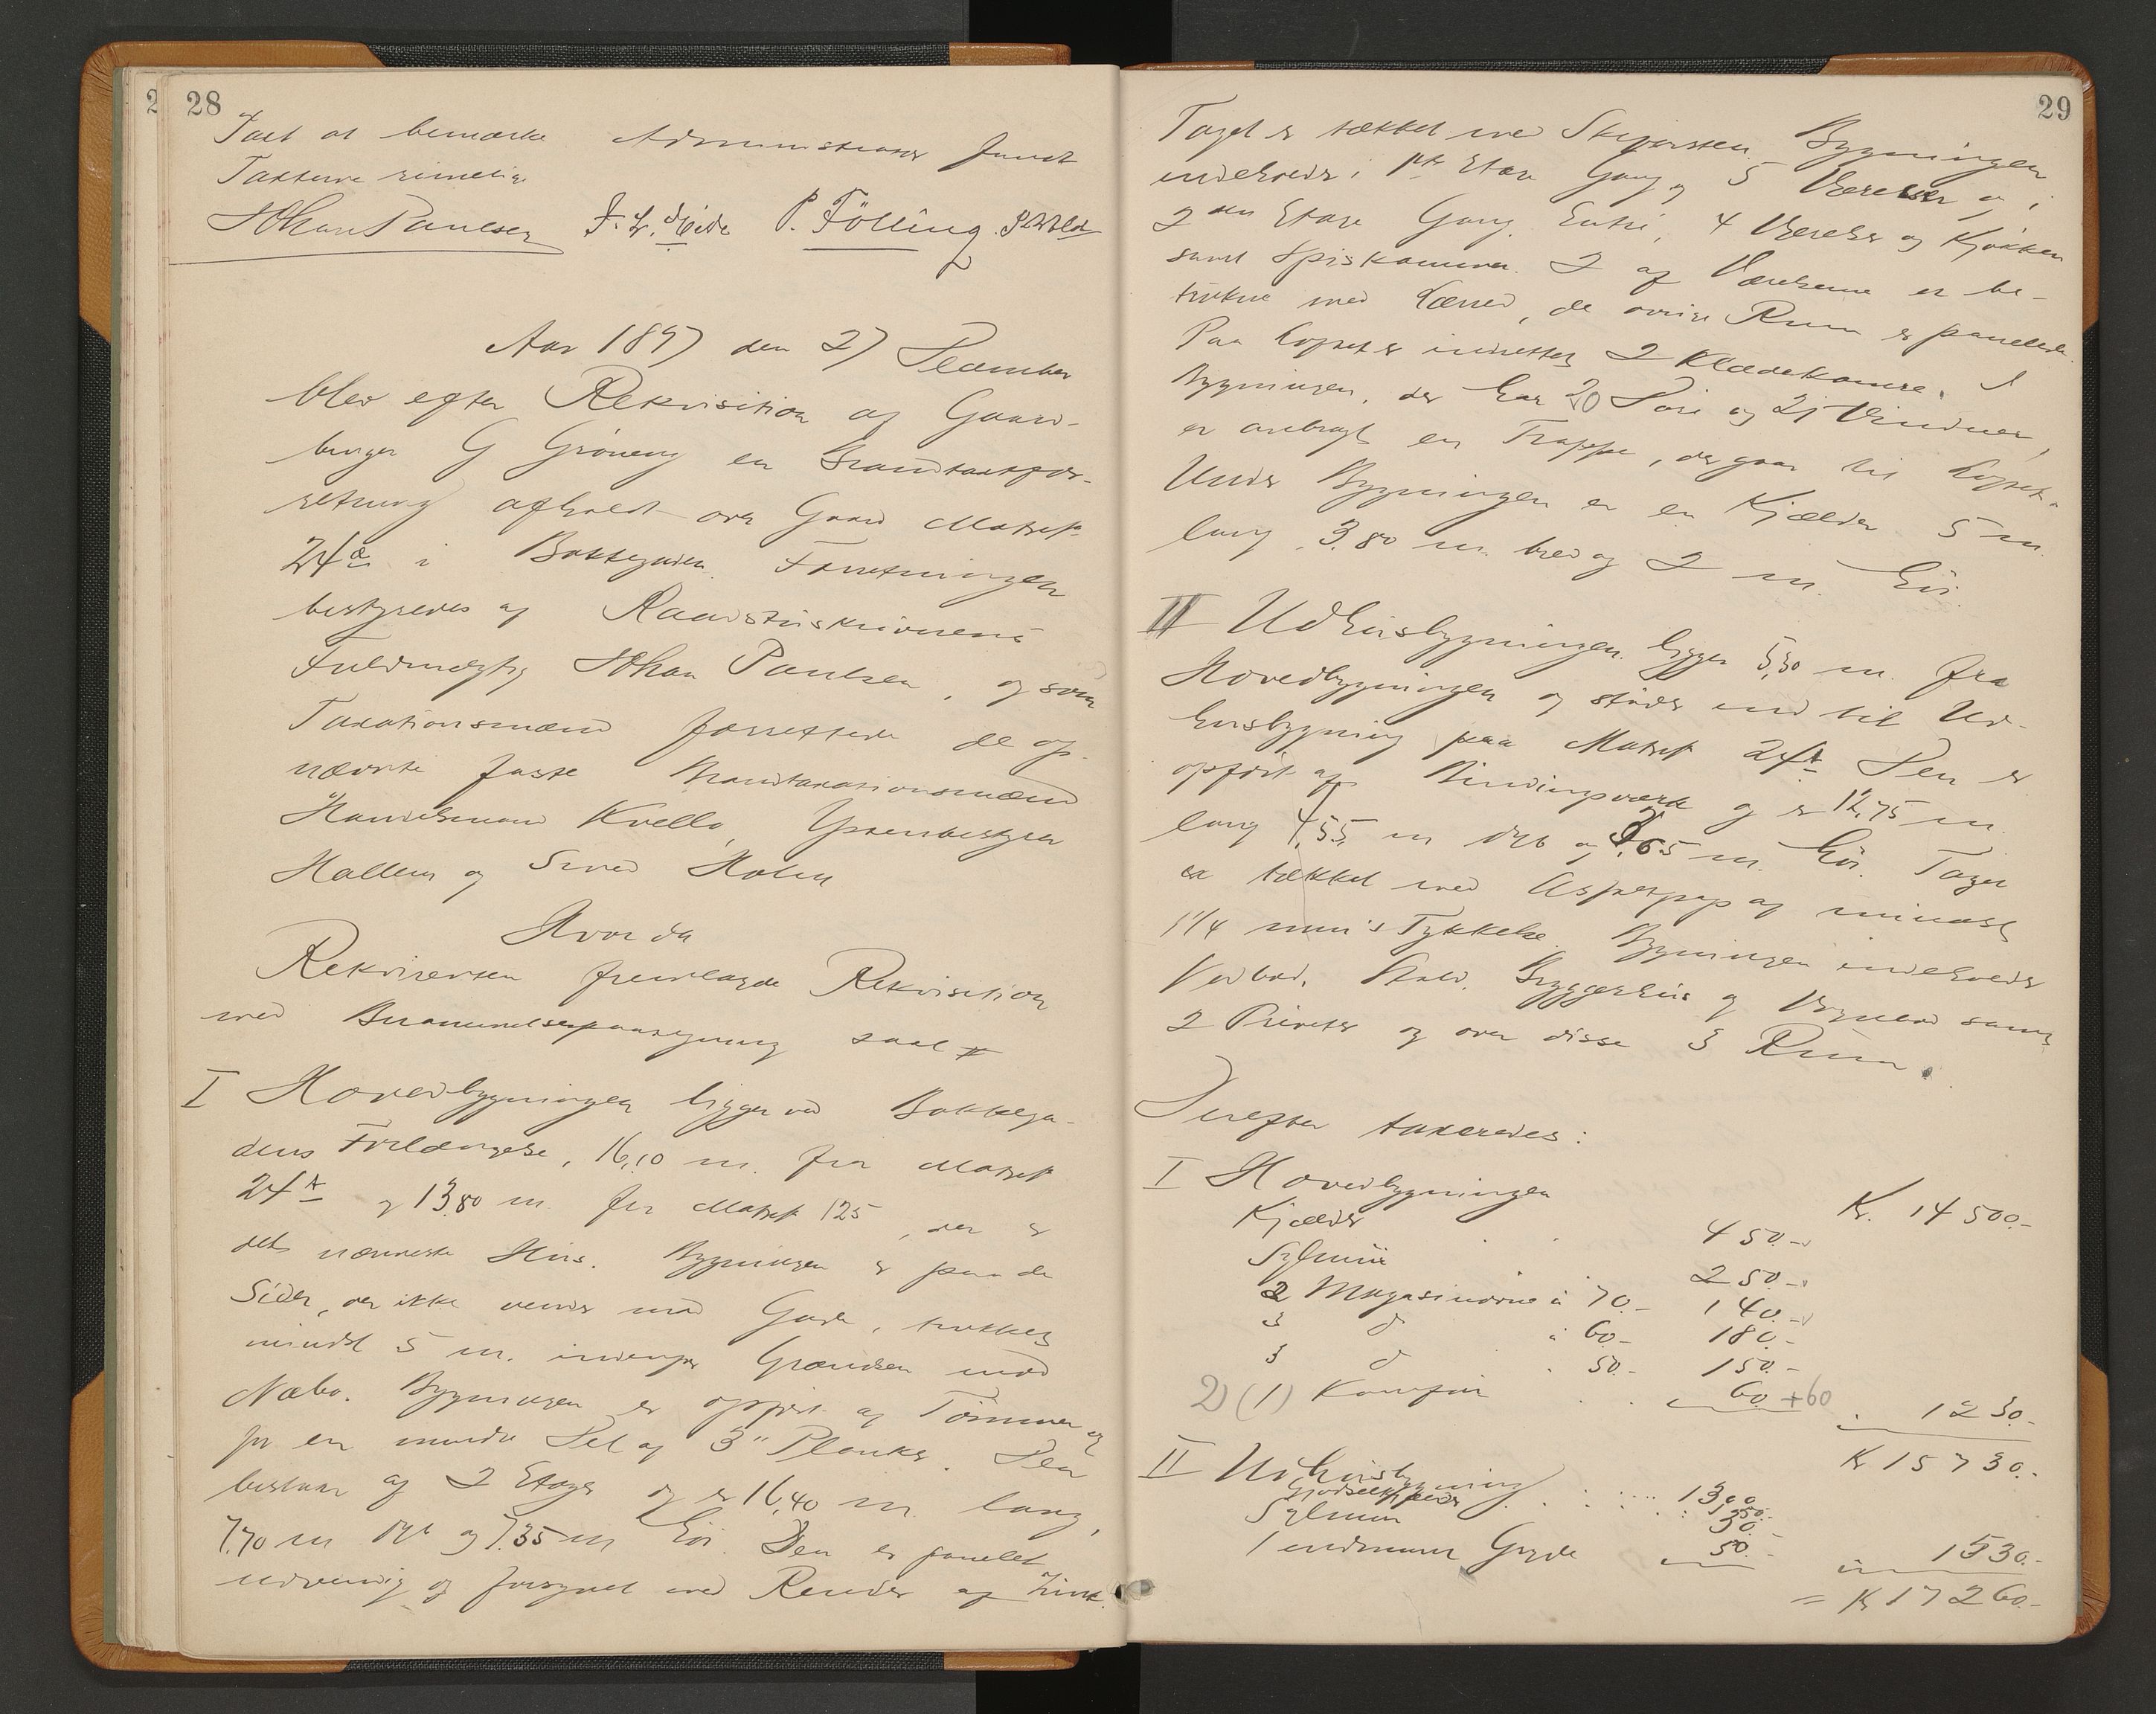 28
Intet at bemærke Administrator fandt
Taksterne rimelige
Johan Paulsen F. L. Eide P. Fölling
Aar 1897 den 27 December
blev efter Rekvisition af Gaard-
bruger G Gröneng en Brandtaktfor-
retning afholdt over Gaard Matrik
24a i Bakkegaden. Forretningen
bestyredes af Raadstuskriverens
Fuldmegtig Johan Paulsen, og som
Taxationsmænd forrettede de op-
nævnte faste Brandtaxationsmænd
Handelsmand Kvello,
Hallem og Smed Holm
Hvorda
Rekvirenten fremlagde Rekvisition
med Berammelsespaategning saal
I Hovedbygningen ligger ved Bakkega-
dens Forlængelse, 16,10 m. fra Matrik
24 og 13,80 m. fra Matrik 125, der er
dets nærmeste Hus. Bygningen er paa de
Sider, der ikke vender mod Gade, trukket
mindst 5 m. indenfor Grændsen mod
Nabo. Bygningen er opført af Tömmer og
for en mindre Del af 3" Planker. Den
bestaar af 2 Etager og er 16,40 m. lang,
7.70 m dyb og 7.35 m höi. Den er panelet
udvendig og forsynet med Render af Zink.
29
Taget er tækket med Skifersten. Bygningen
indeholder i 1ste Etage Gang og 5 Værelser og i
2den Etage Gang, Entré, 4 Værelser og Kjøkken
samt Spiskammer. 2 af Værelserne er be-
trukne med Lærred, de øvrige Rum er panelede.
Paa Loftet er indrettet 2 Klædekamre. I
Bygningen, der har 20 Döre og 21 Vinduer,
er anbragt en Trappe, der gaar til Loftet.
Under Bygningen er en Kjælder 5 m.
lang, 3.80 m. bred og 2 m. höi.
II Udhusbygningen ligger 5,30 m. fra
Hovedbygningen og stöder ind til Ud-
husbygning paa Matrik 24. Den er
opfört af Bindingsværk og er 12,75 m.
lang 4,55 m dyb og 3.65 m. höi. Taget
er tækket med Asfaltpap af mindst
1 1/4 mm's Tykkelse. Bygningen indeholder
Vedbod, Stald, Bryggerhus og Vognbod samt
2 Priveter og over disse 3 Rum.
Derefter taxeredes:
I Hovedbygningen Kr. 14500.-
Kjælder 450.-
Sylmur 250.-
2 Magasinovne à 70.- 140.-
3 d à 60.- 180.-
3 d - 50.- 150.-
2) (1) Komfur 60 +60 1230.-
Kr 15730.-
II Udhusbygning 1300.-
50.-
Sylmur 30.-
1 indmuret Gryde 50.- 1530.-
= Kr 17260.-